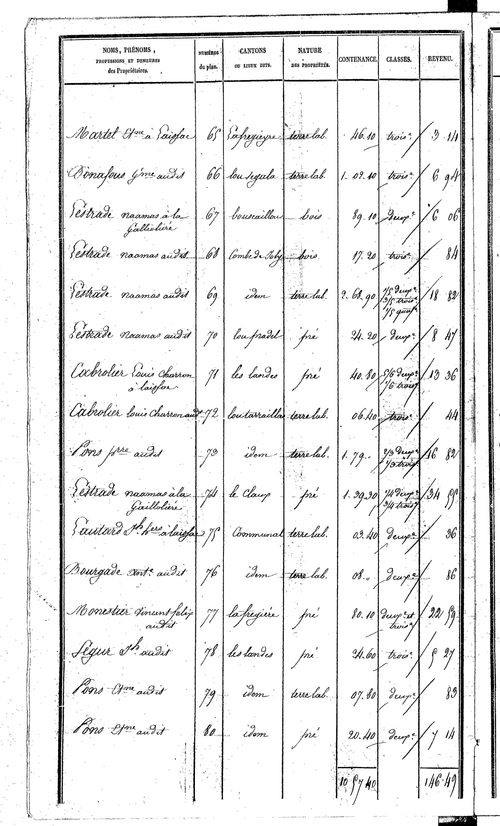 NOMS, PRÉNOMS, PROFESSIONS ET DEMEURES des Propriétaires. NUMÉROS du plan. CANTONS OU LIEUX DITS. NATURE DES PROPRIÉTÉS. CONTENANCE. CLASSES. REVENU.
Martel Etne à 65 terre lab. 46.10 trois.e 3 14
Bonafous Gme audit 66 lou segala terre lab. 1. 02.10 trois.e 6 94
Lestrade naamas à la 67 bois 89.10 deuxe 6 06
Galliolière
Lestrade naamas audit 68 Combe de bois 17.20 trois.e 84
Lestrade naamas audit 69 idem terre lab. 2. 68.90 1/5 deuxe 3/5 troise 1/5 quate 18 82
Lestrade naamas audit 70 lou pradel pré 24.20 deuxe 8 47
Cabrolier Louis Charron 71 les landes pré 40.80 5/6 deuxe 1/6 troise 13 36
Cabrolier Louis Charron audit 72 lou tarrailla terre lab. 06.40 troise 44
Pons audit 73 idem terre lab. 1. 79.. 2/3 deuxe 1/3 troise 16 82
Lestrade naamas à la 74 le Claux pré 1. 39.30 1/4 deuxe 3/4 troise 34 55
Gaillolière
Lautard Jh 75 Communal terre lab. 03.40 deuxe 36
Bourgade audit 76 idem terre lab. 08.. deuxe 86
Monestier Vincent felix 77 la fregière pré 80.10 deuxe et troise 22 59
audit
Ségur Jh audit 78 les landes pré 34.60 troise 5 27
Pons Etne audit 79 idem terre lab. 07.80 deuxe 83
Pons Etne audit 80 idem pré 20.40 deuxe 7 14
10 57 40 146.49